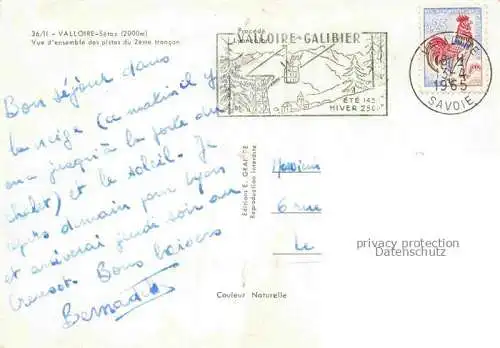 36/11 - VALLOIRE-Sétaz (2000m)
Vue d'ensemble des pistes du 2ème tronçon
Procédé
VALLOIRE-GALIBIER
ÉTÉ 143
HIVER 250
18 H
3-4
1965
SAVOIE
Bon séjour dans
la neige (ce matin il y
en a jusqu'à la porte du
chalet) et le soleil. Je
après demain pour Lyon
et arriverai jeudi soir au
Creusot. Bons baisers
Bernadette
Editions E. GRAFTE
Reproduction interdite
Monsieur
6 rue
Le
privacy protection
Datenschutz
Couleur Naturelle